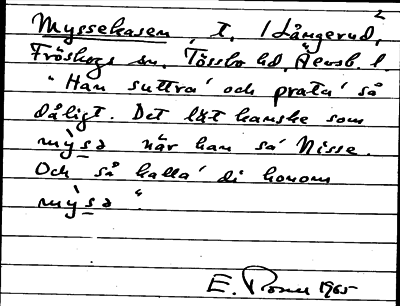 2
Myssekasen, t. i Långerud,
Fröskogs sn. Tössbo hd. Älvsb. l.
"Han suttra' och prata' så
dåligt. Det lät kanske som
mysə när han sa' Nisse.
Och så kalla' di honom
mysə"
E. 1965